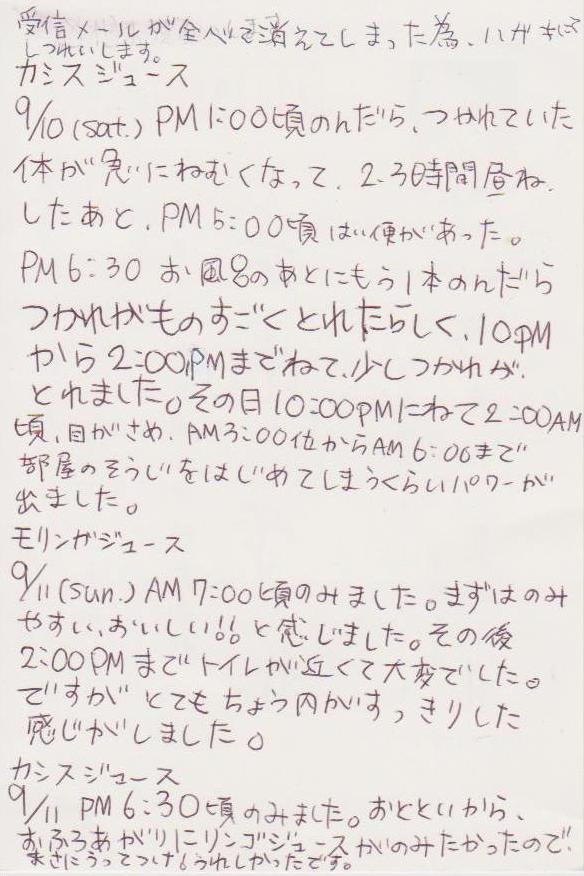 受信メールが全べて消えてしまった為、ハガキにて
しつれいします。
カシスジュース
9/10 (sat.) PM 1:00頃のんだら、つかれていた
体が急にねむくなって、2.3時間昼ね、
したあと、PM 5:00頃はい便があった。
PM 6:30 お風呂のあとにもう1本のんだら
つかれがものすごくとれたらしく、10PM
から2:00PMまでねて、少しつかれが、
とれました。その日10:00PMにねて2:00AM
頃、目がさめ、AM3:00位からAM 6:00まで
部屋のそうじをはじめてしまうくらいパワーが
出ました。
モリンガジュース
9/11 (sun.) AM 7:00頃のみました。まずはのみ
やすい、おいしい!!と感じました。その後
2:00PMまでトイレが近くて大変でした。
ですがとてもちょう内がすっきりした
感じがしました。
カシスジュース
9/11 PM 6:30頃のみました。おとといから、
おふろあがりにリンゴジュースがのみたかったので、
まさにうってつけ!うれしかったです。